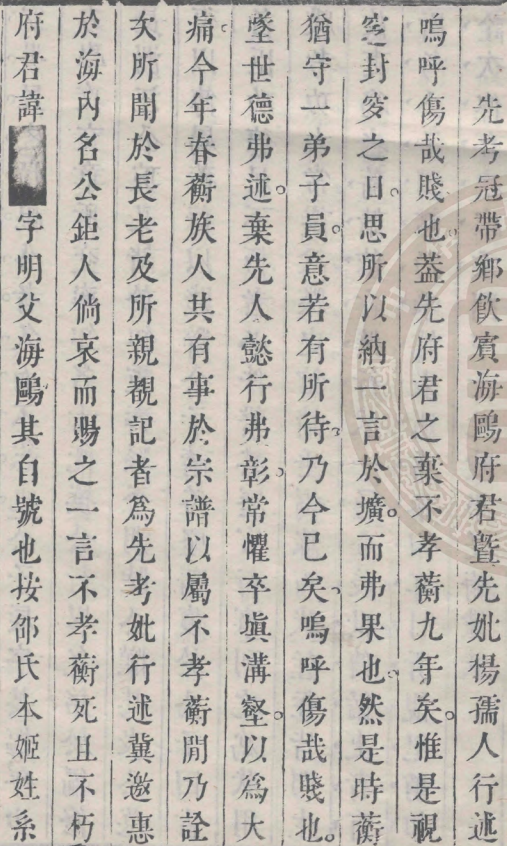 先考冠帶鄉飲賓海鷗府君暨先妣楊孺人行述
嗚呼傷哉賤也。葢先府君之棄不孝蘅九年矣。惟是視
窆封窆之日。思所以納一言於壙。而弗果也。然是時蘅
猶守一弟子員。意若有所待。乃今已矣。嗚呼傷哉賤也。
墜世德弗述。棄先人懿行弗彰。常懼卒塡溝壑。以爲大
痛。今年春蘅族人共有事於宗譜以屬不孝蘅閒乃詮
次所聞於長老及所親覩記者爲先考妣行述冀邀惠
於海內名公鉅人倘哀而賜之一言不孝蘅死且不朽
府君諱 字明父海鷗其自號也按邰氏本姬姓系